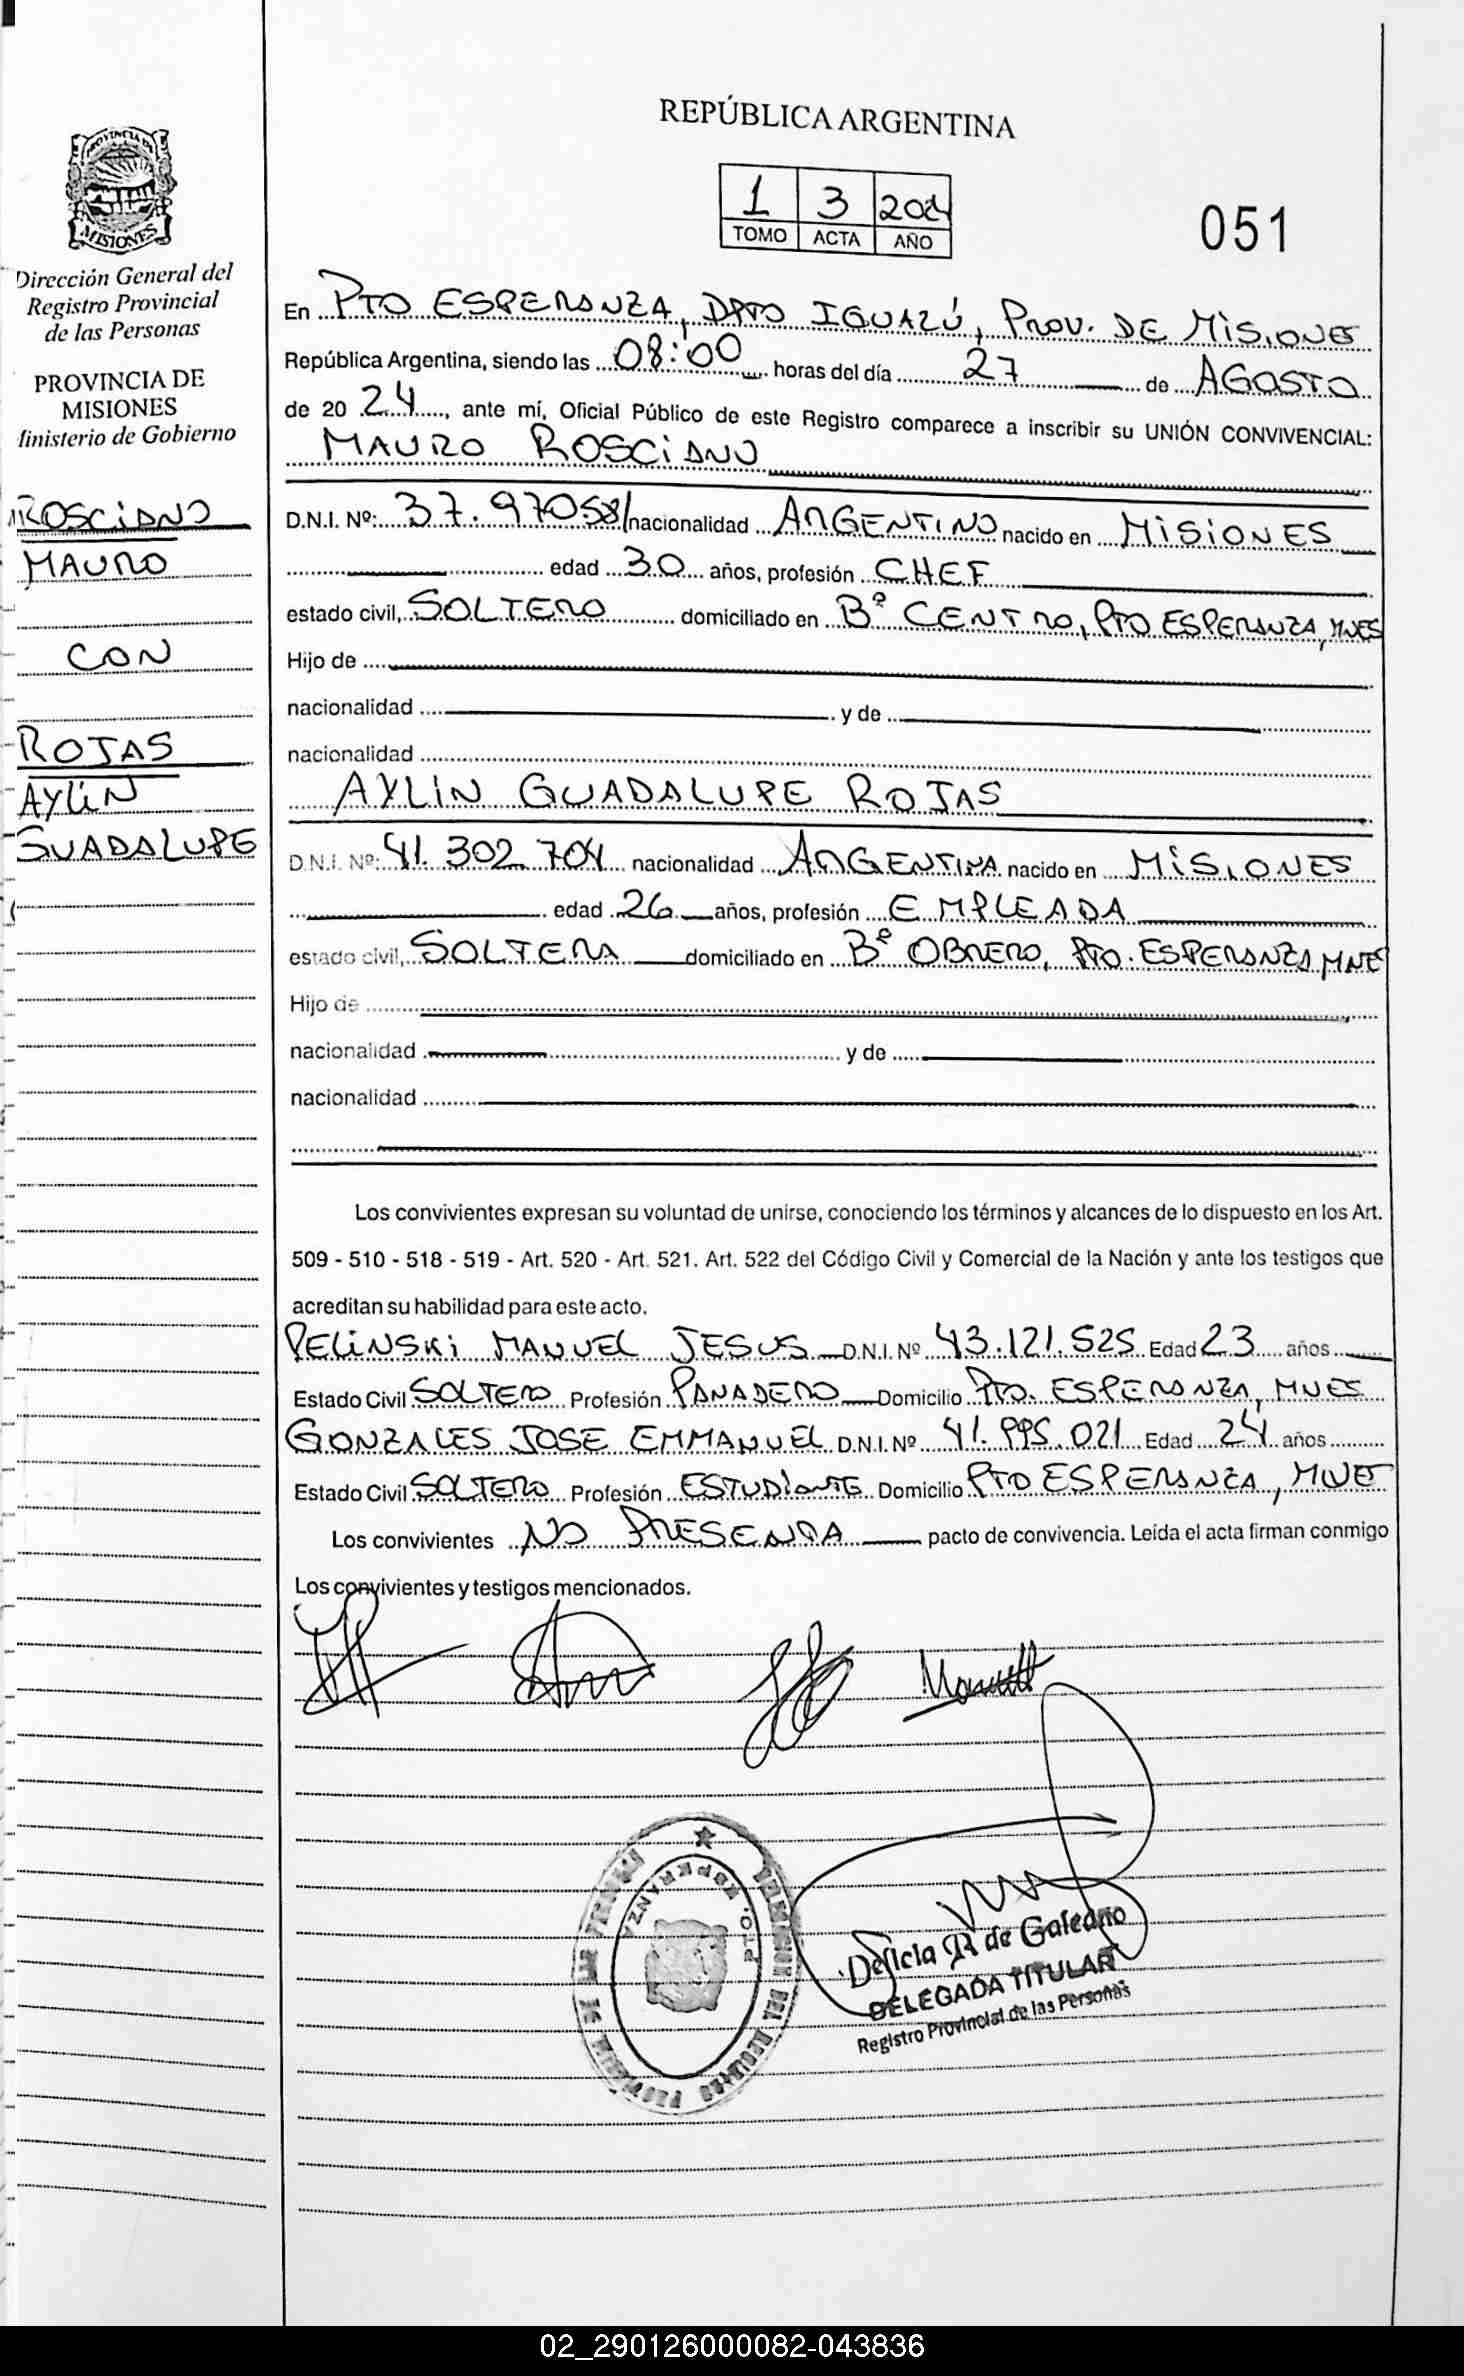 REPÚBLICA ARGENTINA
1 3 2024
TOMO ACTA AÑO
051
PROVINCIA DE
MISIONES
Dirección General del
Registro Provincial
de las Personas
PROVINCIA DE
MISIONES
Ministerio de Gobierno
ROSCIANO
MAURO
CON
ROJAS
AYLIN
GUADALUPE
En PTO ESPERANZA, DPTO IGUAZÚ, PROV. DE MISIONES
República Argentina, siendo las 08:00 horas del día 27 de AGOSTO
de 20 24, ante mí, Oficial Público de este Registro comparece a inscribir su UNIÓN CONVIVENCIAL:
MAURO ROSCIANO
D.N.I. Nº: nacionalidad ARGENTINO nacido en MISIONES
edad 30 años, profesión CHEF
estado civil, SOLTERO domiciliado en Bº CENTRO, PTO ESPERANZA, MNES
Hijo de
nacionalidad y de
nacionalidad
AYLIN GUADALUPE ROJAS
D.N.I. Nº: 41.302.704 nacionalidad ARGENTINA nacido en MISIONES
edad 26 años, profesión EMPLEADA
estado civil, SOLTERA domiciliado en Bº OBRERO, PTO. ESPERANZA MNES
Hijo de
nacionalidad y de
nacionalidad
Los convivientes expresan su voluntad de unirse, conociendo los términos y alcances de lo dispuesto en los Art.
509 - 510 - 518 - 519 - Art. 520 - Art. 521. Art. 522 del Código Civil y Comercial de la Nación y ante los testigos que
acreditan su habilidad para este acto.
PELINSKI MANUEL JESUS D.N.I. Nº 43.121.525 Edad 23 años
Estado Civil SOLTERO Profesión PANADERO Domicilio PTO. ESPERANZA, MNES
GONZALES JOSE EMMANUEL D.N.I. Nº 41.995.021 Edad 24 años
Estado Civil SOLTERO Profesión ESTUDIANTE Domicilio PTO ESPERANZA, MNES
Los convivientes NO PRESENTA pacto de convivencia. Leída el acta firman conmigo
Los convivientes y testigos mencionados.
PTO. ESPERANZA
de Galeano
DELEGADA TITULAR
Registro Provincial de las Personas
02_290126000082-043836